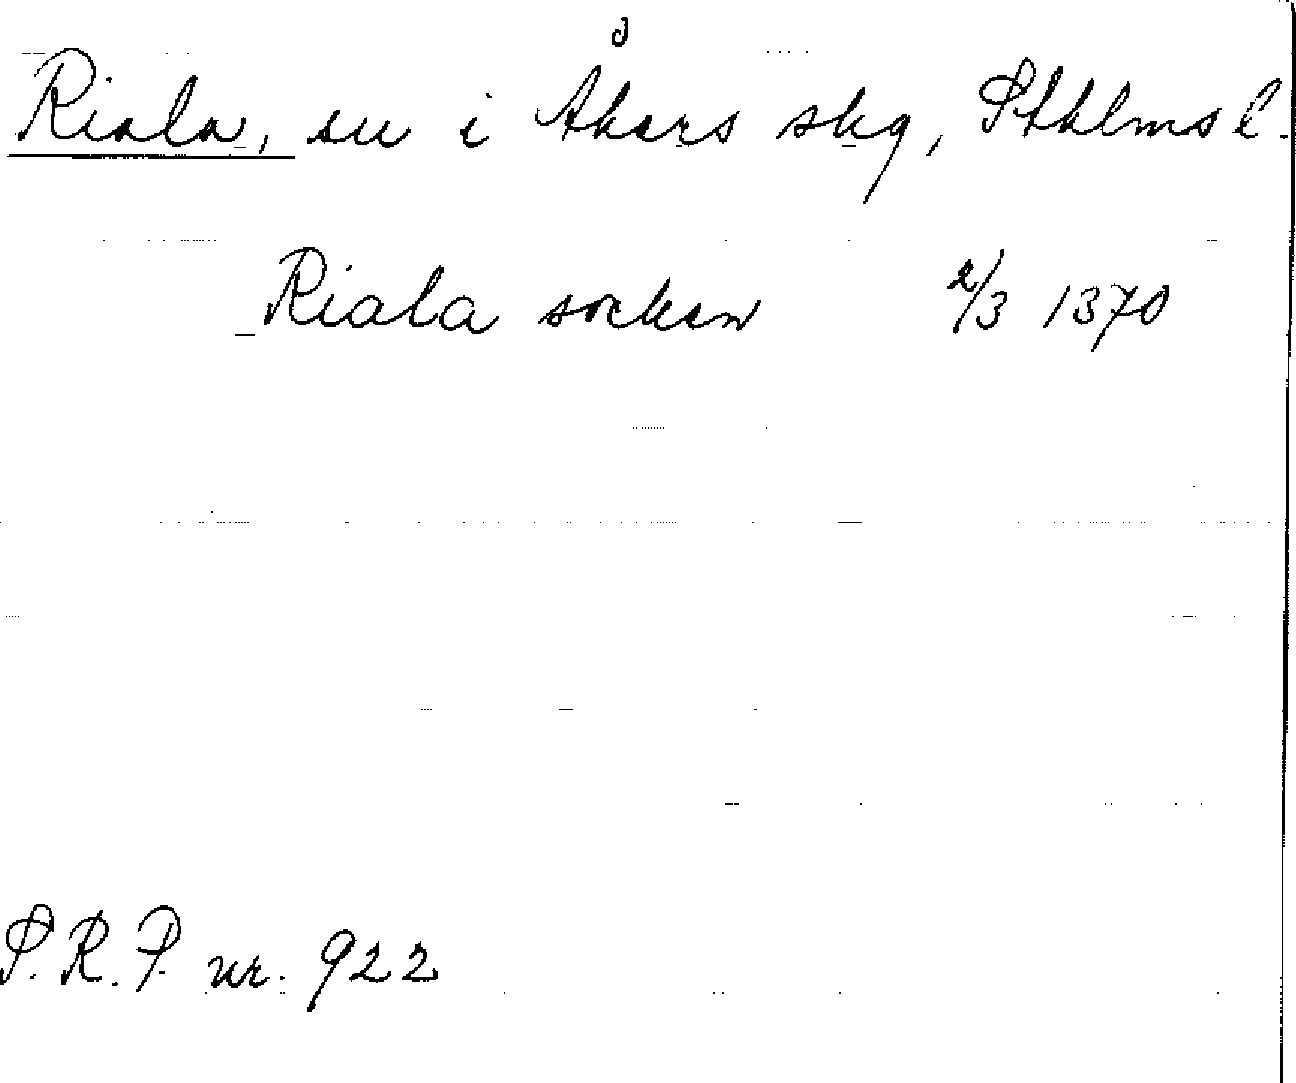 Riala, sn i Åkers skg, Sthlms l.
Riala socken 2/3 1370
S.R.P. nr. 922